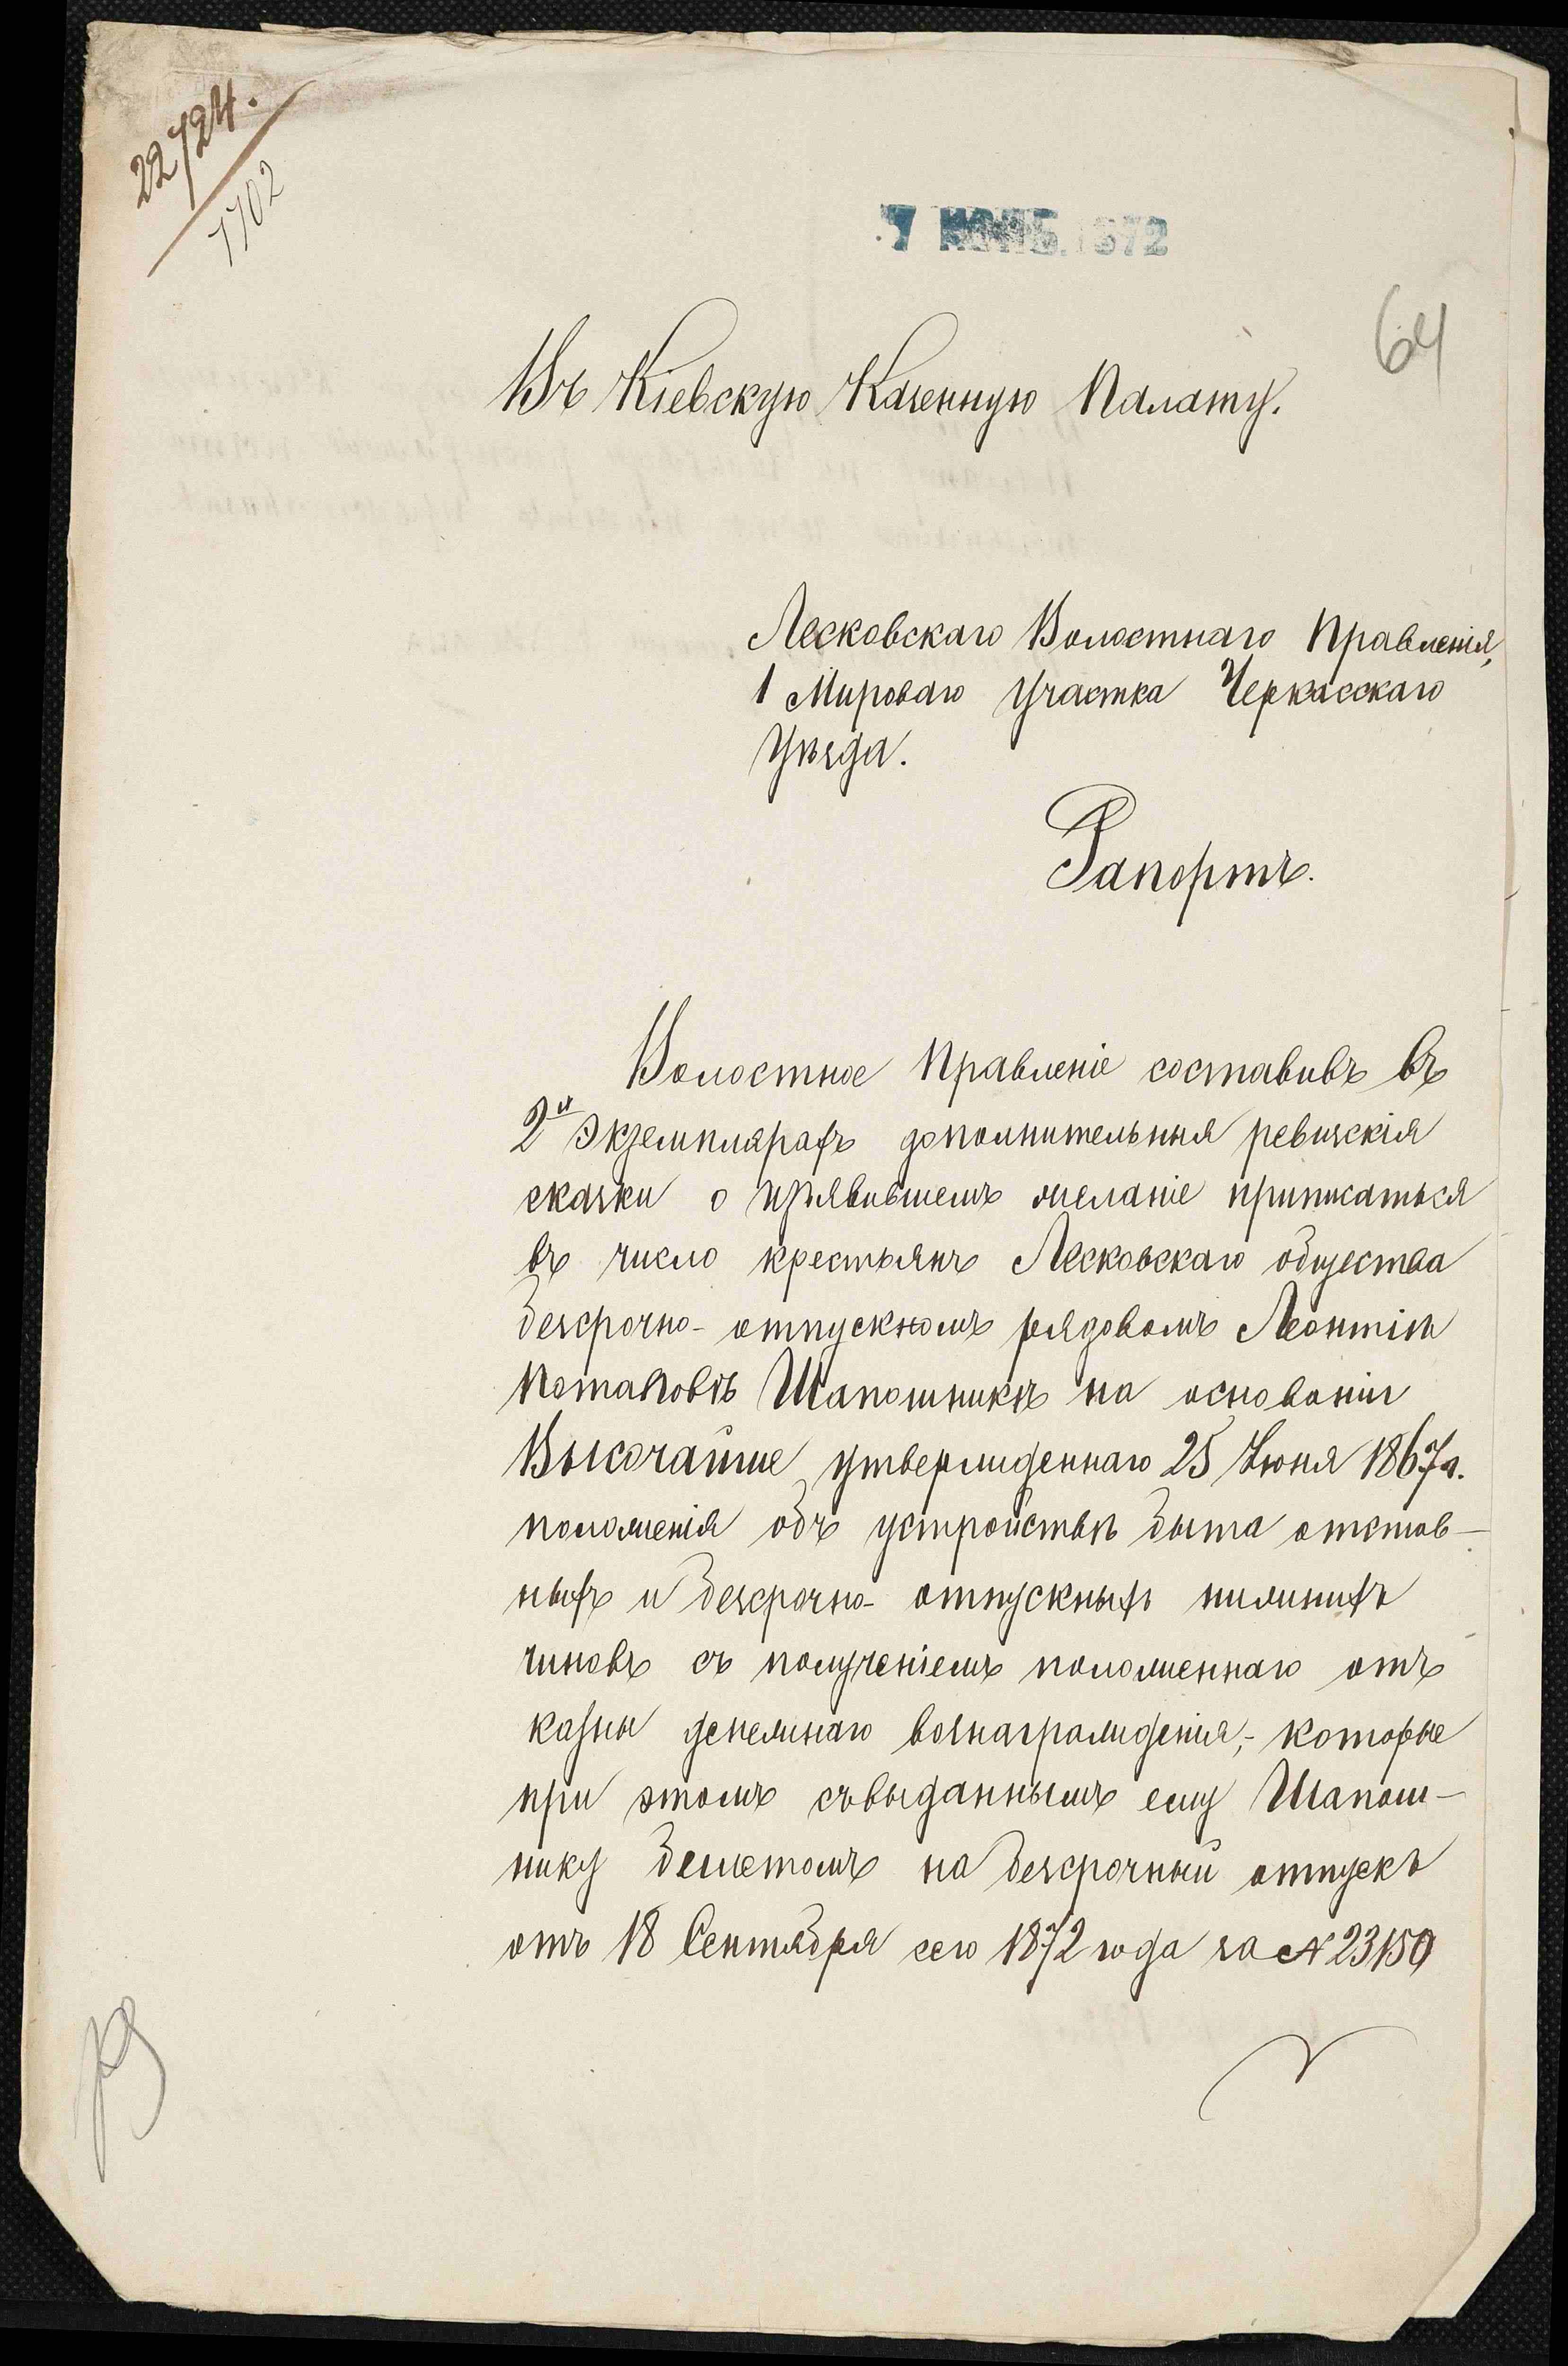 22724.
7702
7 НОЯБ. 1872
64
Въ Кіевскую Казенную Палату.
Лесковскаго Волостнаго Правленія,
1 Мироваго Участка Черкасскаго
Уѣзда.
Рапортъ.
Волостное Правленіе составивъ въ
2хъ экземплярахъ дополнительныя ревизскія
сказки о изъявившемъ желаніе приписаться
въ число крестьянъ Лесковскаго общества
безсрочно-отпускномъ рядовомъ Леонтіѣ
Потаповѣ Шапошникѣ на основаніи
Высочайше утвержденнаго 25 Іюня 1867 г.
положенія объ устройствѣ быта отстав-
ныхъ и безсрочно-отпускныхъ нижнихъ
чиновъ съ полученіемъ положеннаго отъ
казны денежнаго вознагражденія,- которые
при этомъ съ выданнымъ ему Шапош-
нику билетомъ на безсрочный отпускъ
отъ 18 Сентября сего 1872 года за № 23150